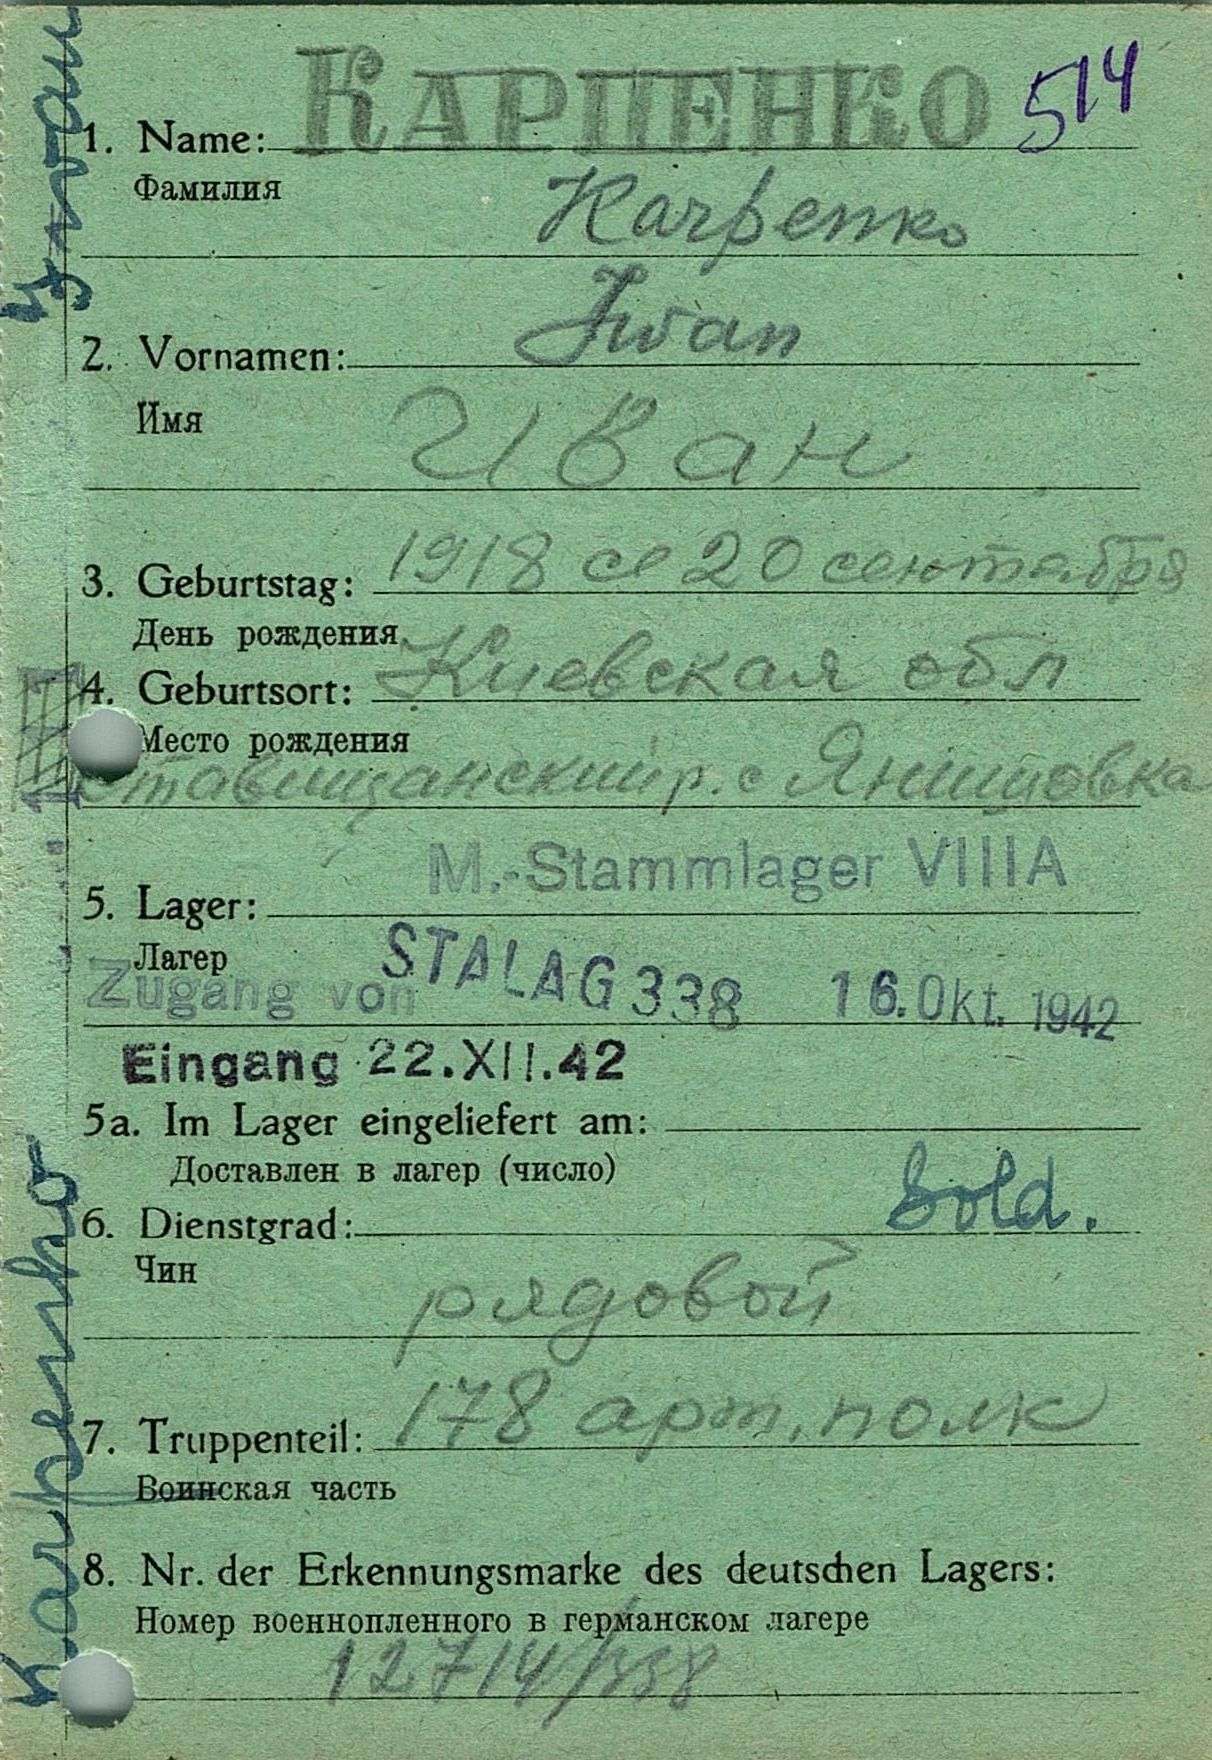 КАРПЕНКО 514
1. Name:
Фамилия
Karpenko
Iwan
2. Vornamen:
Имя
Иван
1918 20 сентября
3. Geburtstag:
День рождения
Киевская обл
4. Geburtsort:
Место рождения
Ставищанский р. с Янишовка
M.-Stammlager VIIIA
5. Lager:
Лагер
Zugang von STALAG 338 16. Okt. 1942
Eingang 22.XII.42
5a. Im Lager eingeliefert am:
Доставлен в лагер (число)
6. Dienstgrad: Sold.
Чин
рядовой
7. Truppenteil: 178 арт. полк
Воинская часть
8. Nr. der Erkennungsmarke des deutschen Lagers:
Номер военнопленного в германском лагере
12714/338
Karpenko Iwan